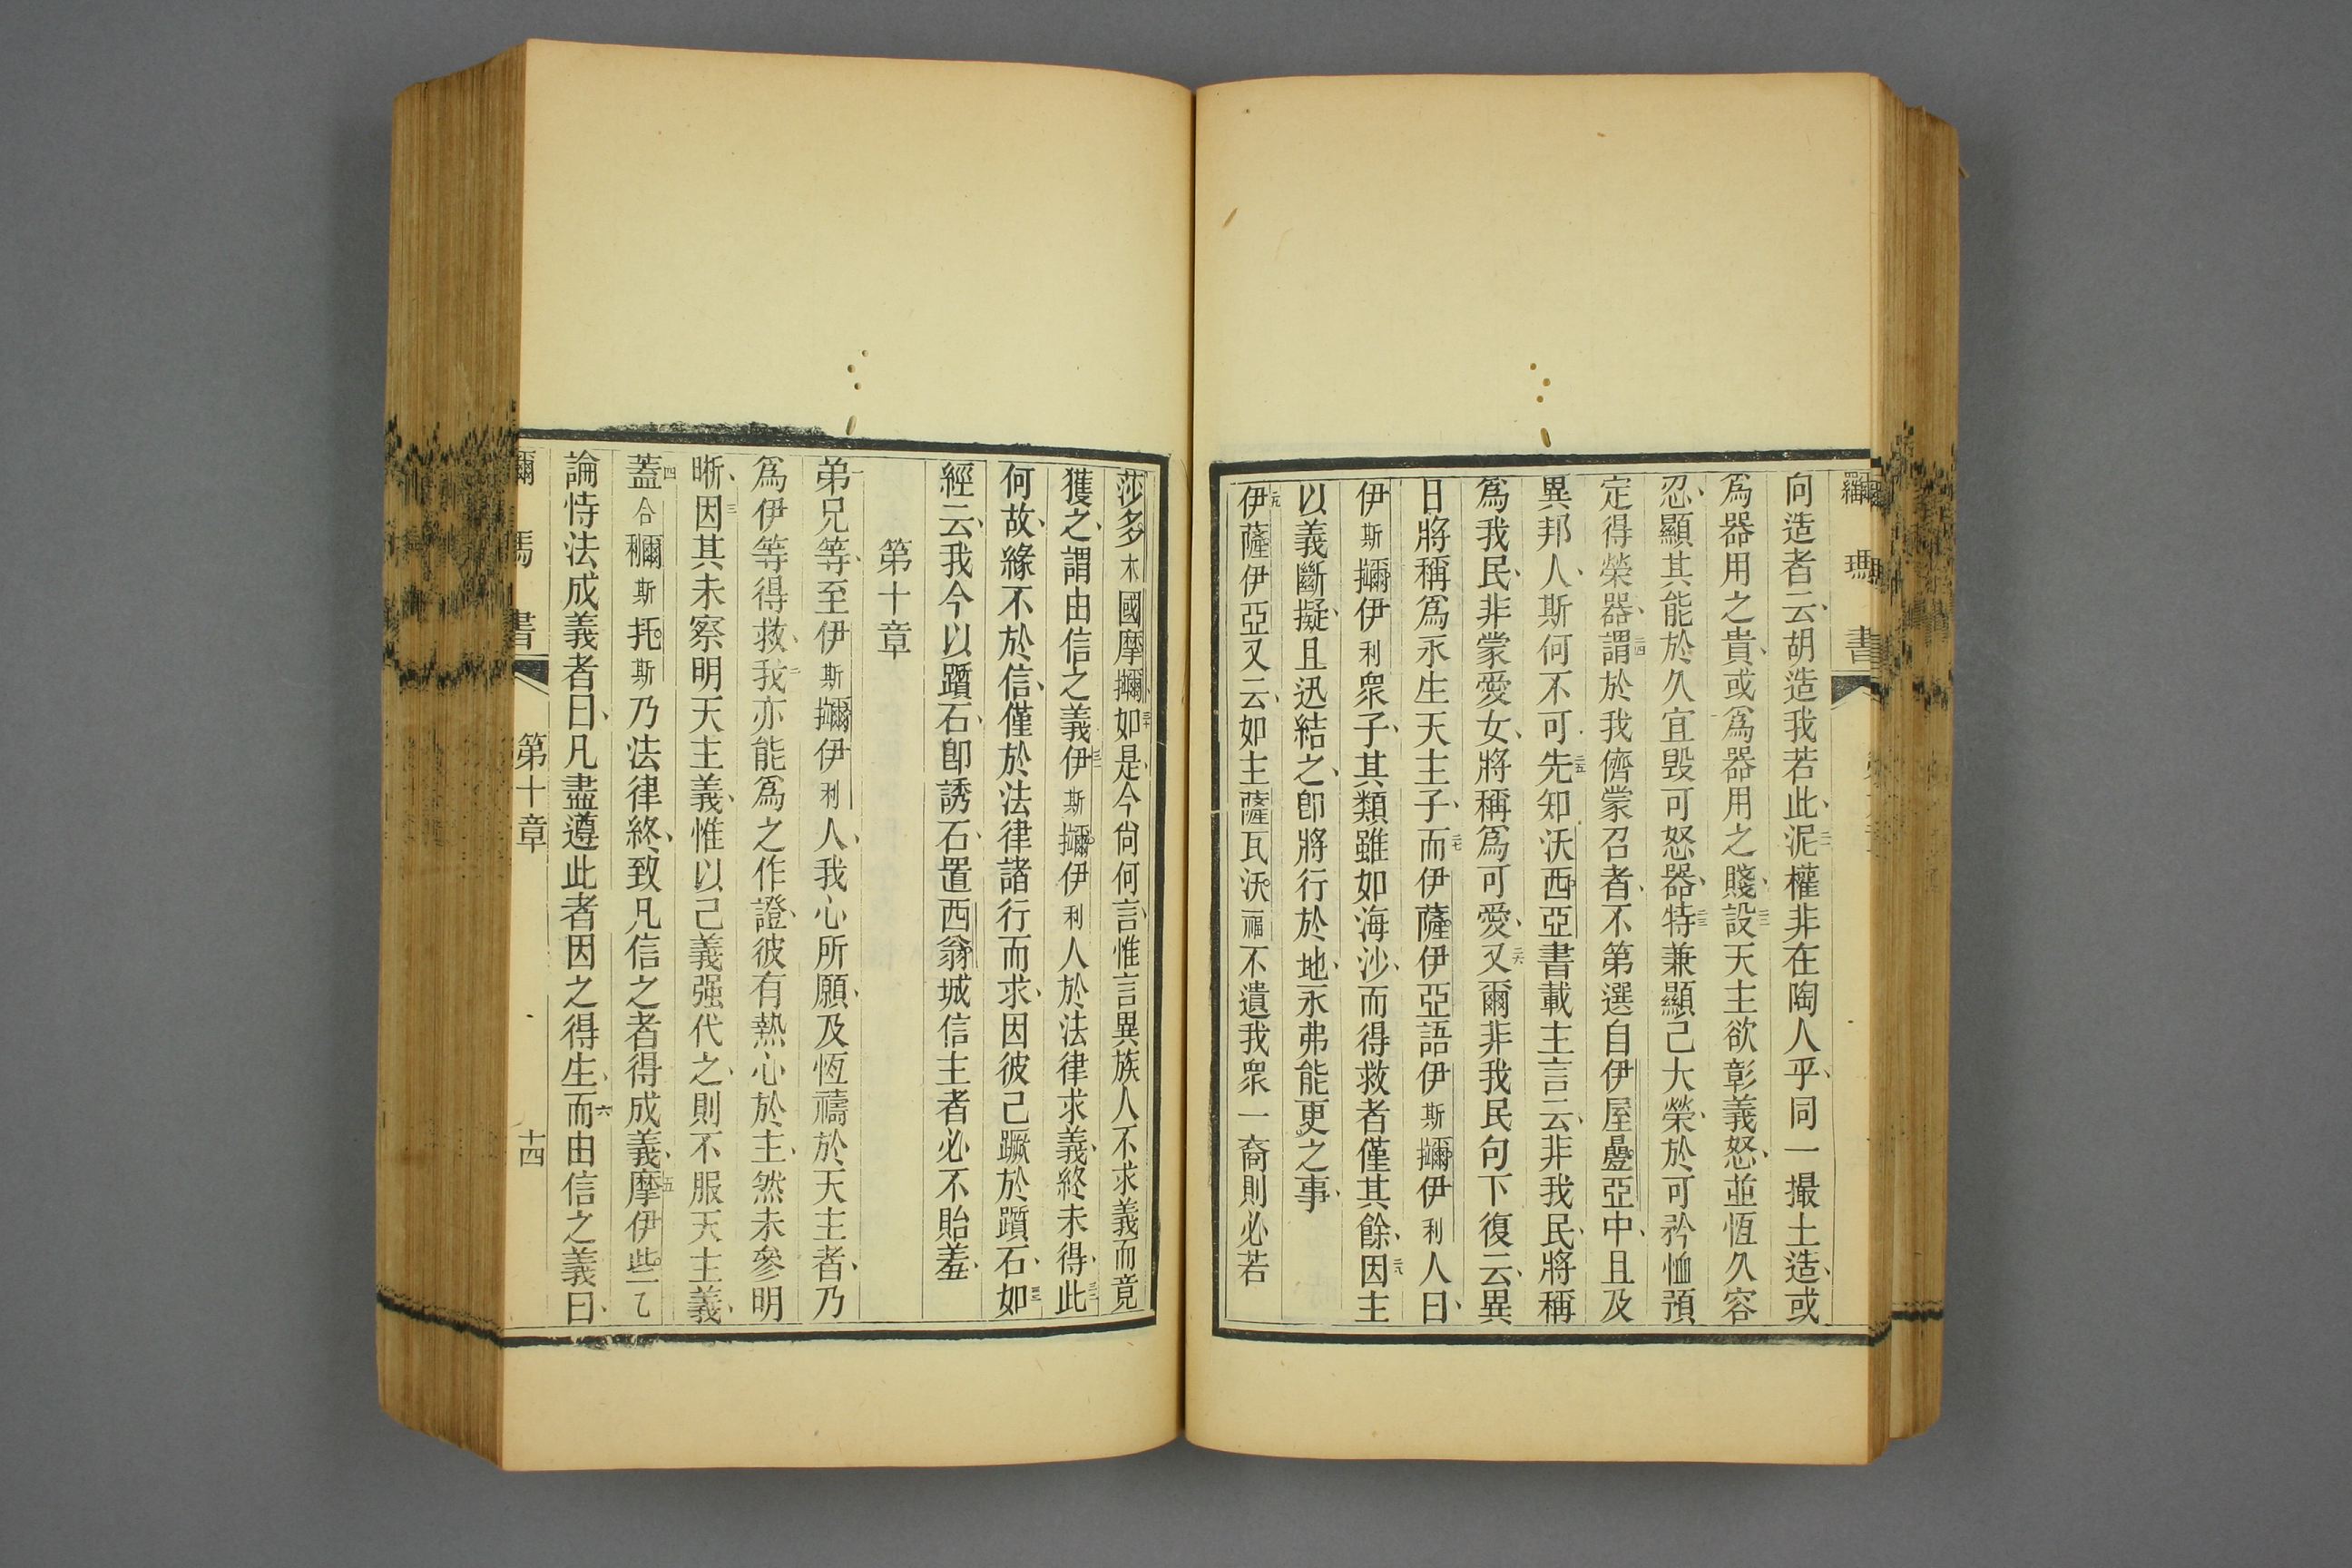 向造者云、胡造我若此、泥權非在陶人乎、同一撮土造、或
爲器用之貴、或爲器用之賤、設天主欲彰義怒、並恆久容
忍、顯其能於久宜毀可怒器、特兼顯己大榮、於可矜恤預
定得榮器、謂於我儕蒙召者、不第選自伊屋疊亞中、且及
異邦人、斯何不可先知沃西亞書載主言云、非我民、將稱
爲我民、非蒙愛女、將稱爲可愛、又爾非我民句下復云、異
日將稱爲永生天主子、而伊薩伊亞語伊斯攧伊利人曰、
伊斯攧伊利衆子、其類雖如海沙、而得救者僅其餘、因主
以義斷擬、且迅結之、卽將行於地、永弗能更之事、
伊薩伊亞又云、如主薩瓦沃福不遺我衆一裔則必若
莎多木國摩攧、如是、今尙何言、惟言異族人不求義而竟
獲之、謂由信之義、伊斯攧伊利人於法律求義、終未得、此
何故、緣不於信、僅於法律諸行而求、因彼己蹶於躓石、如
經云、我今以躓石、卽誘石、置西翁城信主者必不貽羞、
第十章
弟兄等、至伊斯攧伊利人、我心所願、及恆禱於天主者、乃
爲伊等得救、我亦能爲之作證、彼有熱心於主、然未參明
晰、因其未察明天主義、惟以己義强代之、則不服天主義、
蓋合穪斯托斯乃法律終、致凡信之者得成義、摩伊些乙
論恃法成義者曰、凡盡遵此者因之得生、而由信之義曰、
第十章
十四